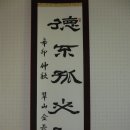 德不孤必
辛卯仲秋 山金